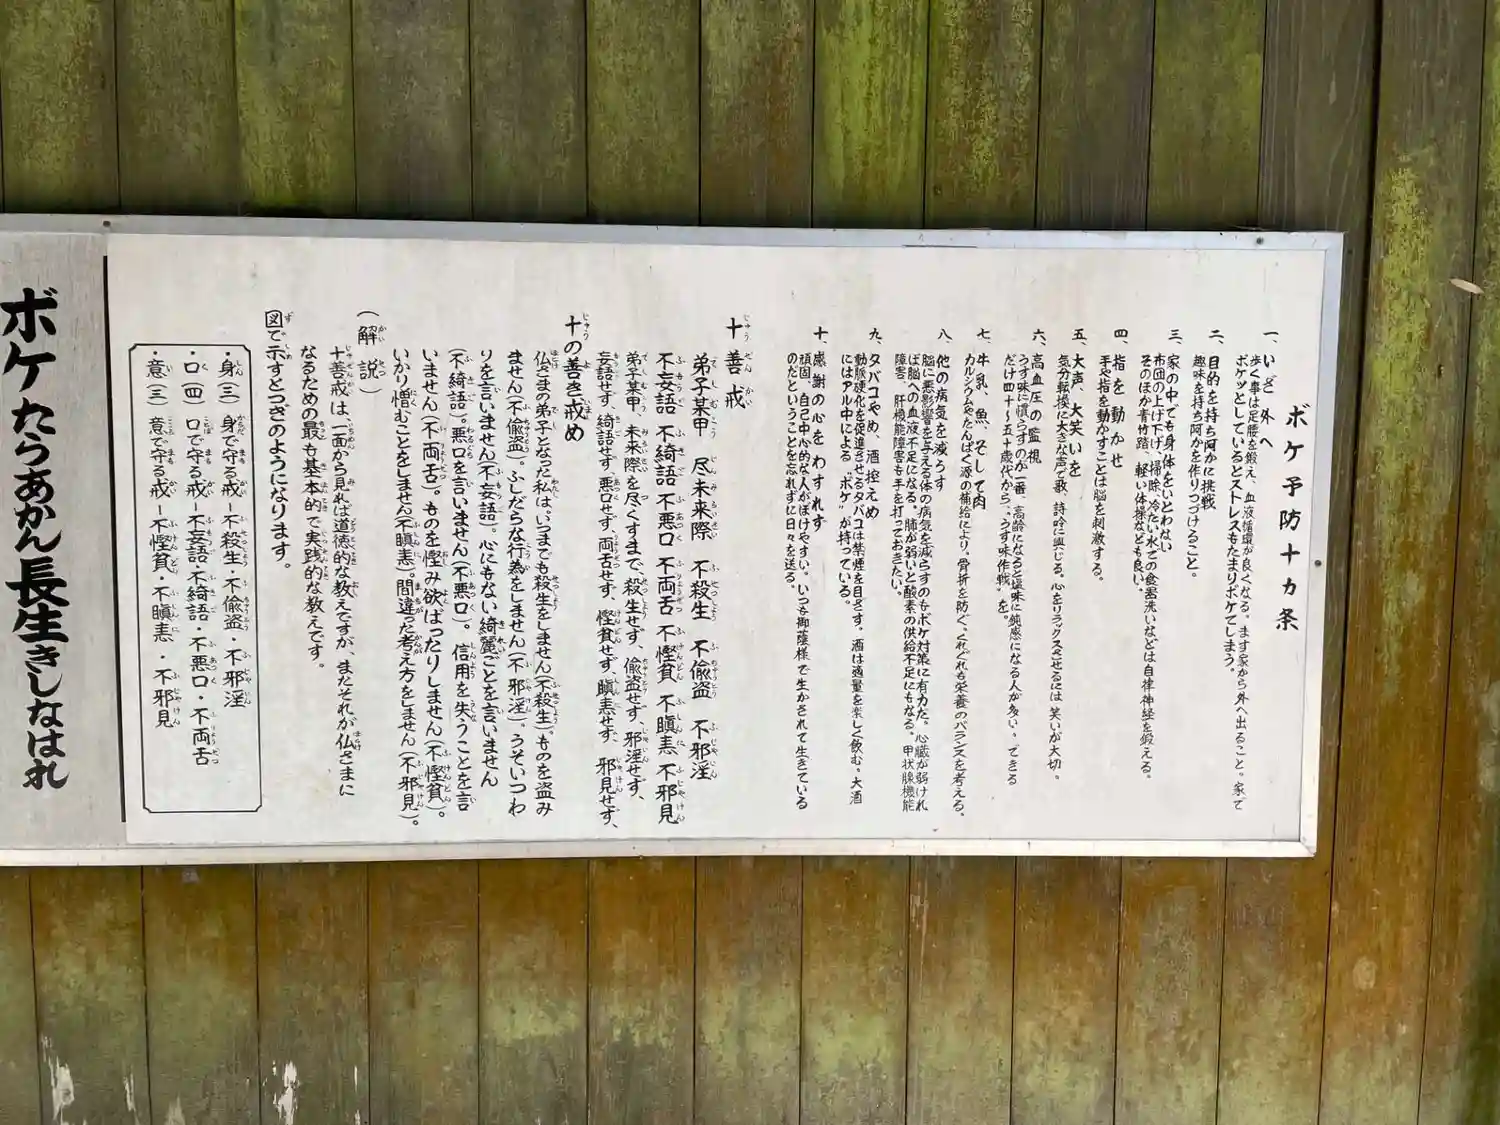 ボケ予防十カ条
一、いざ外へ
歩く事は足腰を鍛え、血液循環が良くなる。まず家から外へ出ること。家で
ボケッとしているとストレスもたまりボケてしまう。
二、目的を持ち何かに挑戦
趣味を持ち何かを作りつづけること。
三、家の中でも身体をいとわない
布団の上げ下げ、掃除、冷たい水での食器洗いなどは自律神経を鍛える。
そのほか青竹踏、軽い体操なども良い。
四、指を動かせ
手や指を動かすことは脳を刺激する。
五、大声、大笑いを
気分転換に大きな声で歌、詩吟に興じる。心をリラックスさせるには笑いが大切。
六、高血圧の監視
うす味に慣らすのが一番。高齢になると塩味に鈍感になる人が多い。できる
だけ四十〜五十歳代から、“うす味作戦”を。
七、牛乳、魚、そして肉
カルシウムやたんぱく源の補給により、骨折を防ぐ。くれぐれも栄養のバランスを考える。
八、他の病気を減らす
脳に悪影響を与える体の病気を減らすのもボケ対策に有力だ。心臓が弱ければ
ば脳への血液不足になる。肺が弱いと酸素の供給不足にもなる。甲状腺機能
障害、肝機能障害も手を打っておきたい。
九、タバコやめ、酒控えめ
動脈硬化を促進させるタバコは禁煙を目ざす。酒は適量を楽しく飲む。大酒
にはアル中による“ボケ”が持っている。
十、感謝の心をわすれず
頑固、自己中心的な人がぼけやすい。いつも御蔭様で生かされて生きている
のだということを忘れずに日々を送る。
十善戒
弟子某甲 尽未来際 不殺生 不偸盗 不邪淫
不妄語 不綺語 不悪口 不両舌 不慳貧 不瞋恚 不邪見
弟子某甲、未来際を尽くすまで、殺生せず、偸盗せず、邪淫せず、
妄語せず、綺語せず、悪口せず、両舌せず、慳貧せず、瞋恚せず、邪見せず、
十の善き戒め
仏さまの弟子となった私は、いつまでも殺生をしません(不殺生)。ものを盗み
ません(不偸盗)。ふしだらな行為をしません(不邪淫)。うそいつわ
りを言いません(不妄語)。心にもない綺麗ごとを言いません
(不綺語)。悪口を言いません(不悪口)。信用を失うことを言
いません(不両舌)。ものを慳み欲ばったりしません(不慳貧)。
いかり憎むことをしません(不瞋恚)。間違った考え方をしません(不邪見)。
(解説)
十善戒は、一面から見れば道徳的な教えですが、またそれが仏さまに
なるための最も基本的で実践的な教えです。
図で示すとつぎのようになります。
・身(三) 身で守る戒−不殺生・不偸盗・不邪淫
・口(四) 口で守る戒−不妄語・不綺語・不悪口・不両舌
・意(三) 意で守る戒−不慳貧・不瞋恚・不邪見
ボケたらあかん長生きしなはれ